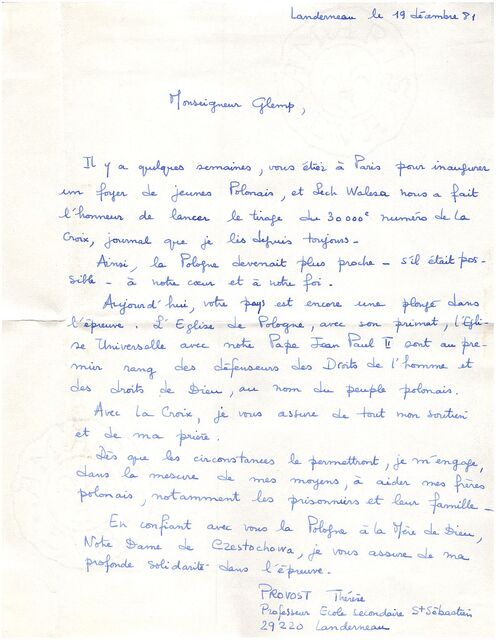 Landerneau le 19 décembre 81
Monseigneur Glemp,
Il y a quelques semaines, vous étiez à Paris pour inaugurer
un foyer de jeunes Polonais, et Lech Walesa nous a fait
l'honneur de lancer le tirage du 30 000e numéro de La
Croix, journal que je lis depuis toujours -
Ainsi, la Pologne devenait plus proche - s'il était pos-
sible - à notre cœur et à notre foi.
Aujourd'hui, votre pays est encore une plongé dans
l'épreuve. L'Eglise de Pologne, avec son primat, l'Egli-
se Universelle avec notre Pape Jean Paul II sont au pre-
mier rang des défenseurs des Droits de l'homme et
des droits de Dieu, au nom du peuple polonais.
Avec La Croix, je vous assure de tout mon soutien
et de ma prière.
Dès que les circonstances le permettront, je m'engage,
dans la mesure de mes moyens, à aider mes frères
polonais, notamment les prisonniers et leur famille -
En confiant avec vous la Pologne à la Mère de Dieu,
Notre Dame de Czestochowa, je vous assure de ma
profonde solidarité dans l'épreuve.
PROVOST Thérèse
Professeur Ecole secondaire St Sébastien
29220 Landerneau